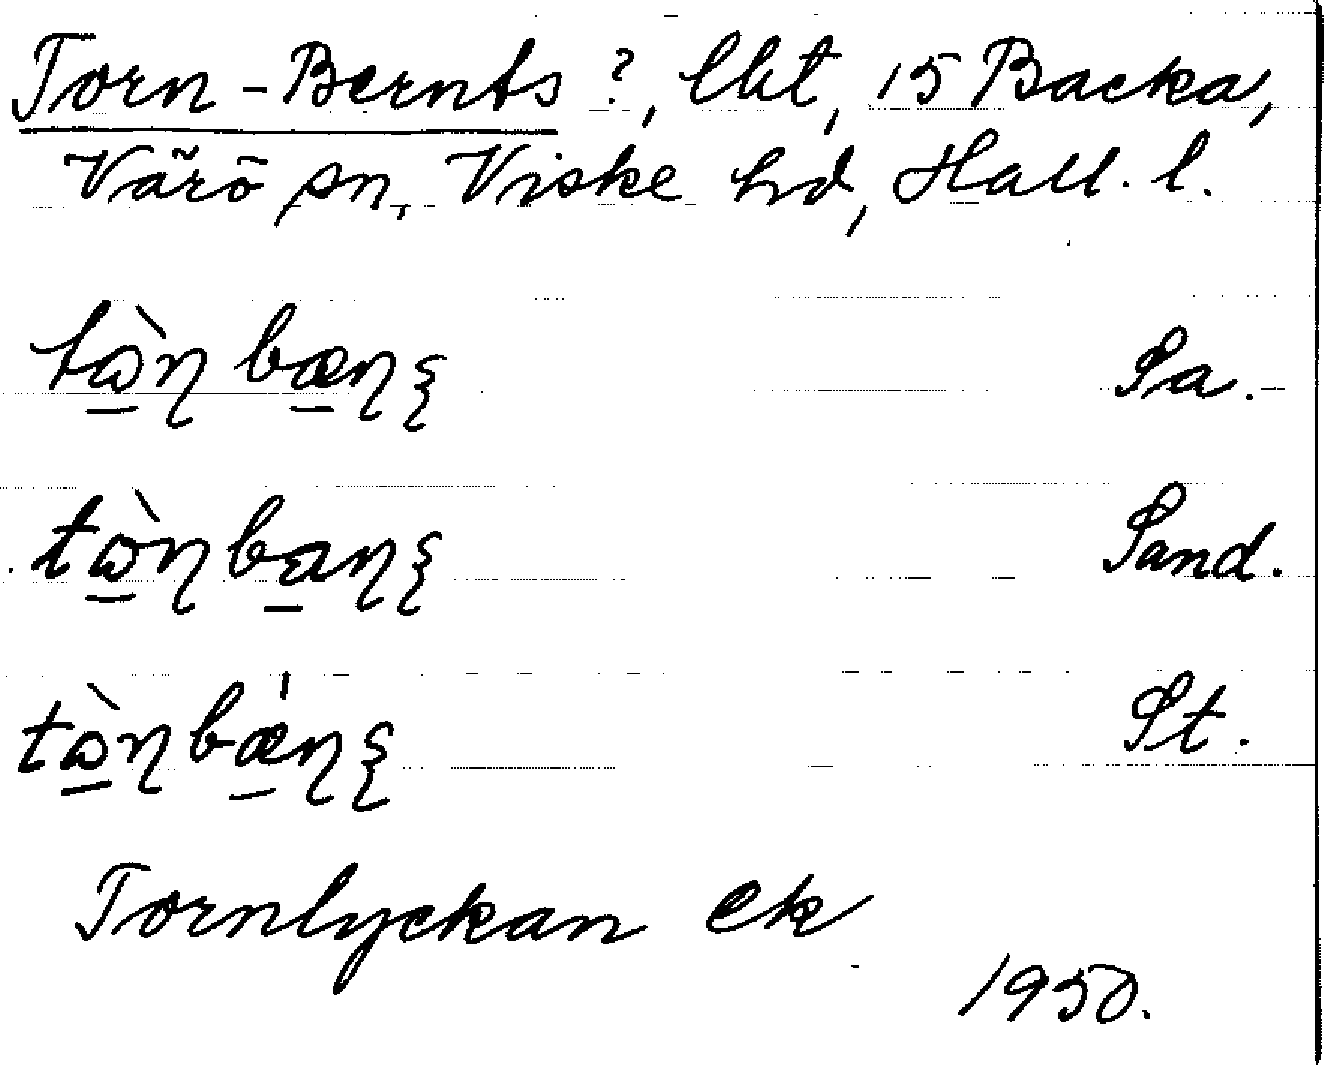 Torn-Bernts ?, lht, 15 Backa,
Värö sn, Viske hd, Hall. l.
tꞷ̲̀ɳbæ̲ɳʂ Sa.
tꞷ̲̀ɳba̲ɳʂ Sand.
tꞷ̲̀ɳbæ̲̍ɳʂ St.
Tornlyckan ek
1950.